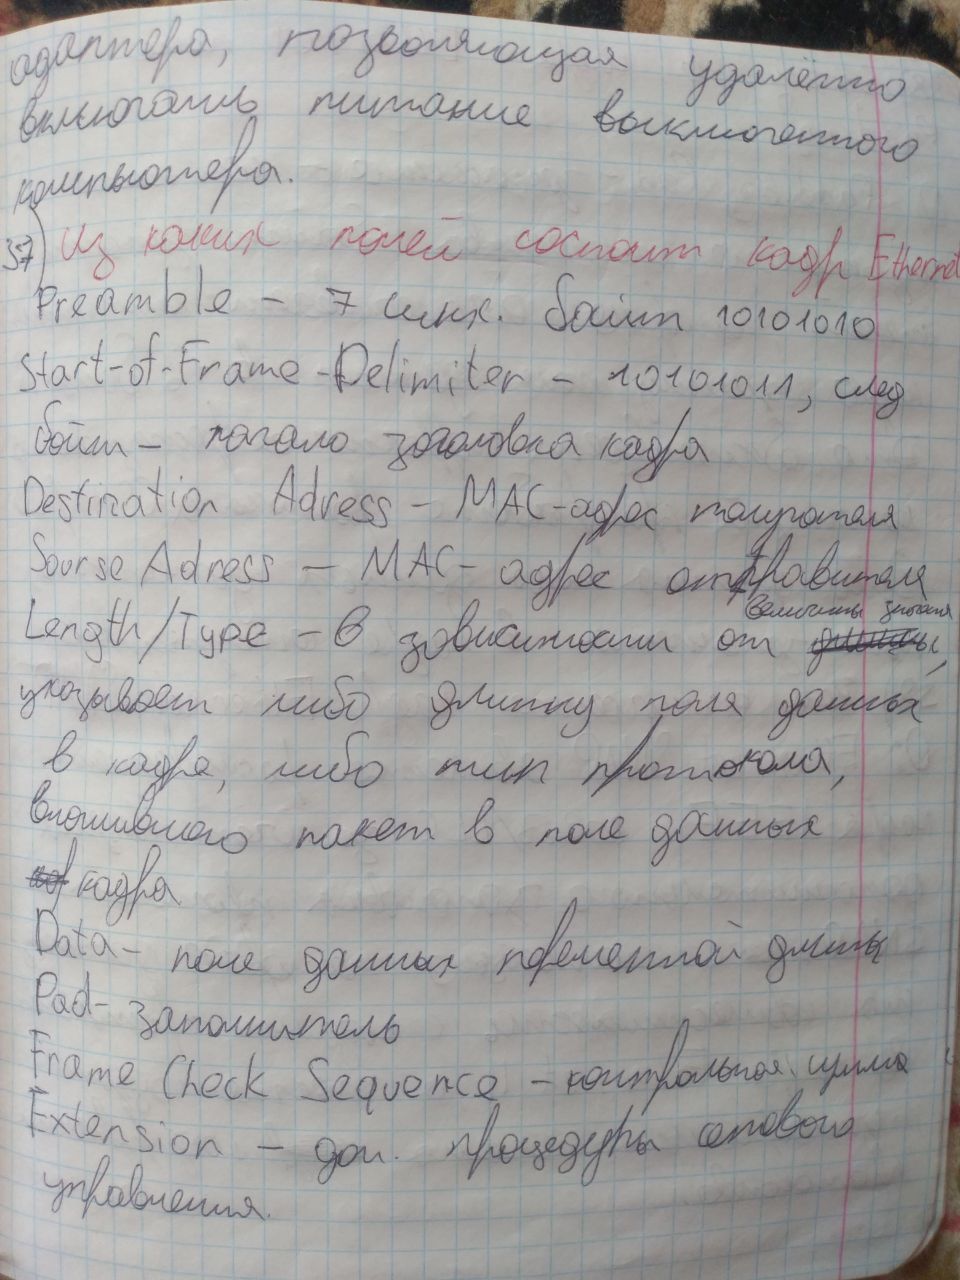 адаптера, позволяющая удалённо
включать питание выключенного
компьютера.
37) Из каких полей состоит кадр Ethernet
Preamble – 7 синх. байт 10101010
Start-of-Frame-Delimiter – 10101011, след
байт – начало заголовка кадра
Destination Adress – MAC-адрес получателя
Sourse Adress – MAC-адрес отправителя
величины значения
Length/Type – в зависимости от длины,
указывает либо длину поля данных
в кадре, либо тип протокола,
вложившего пакет в поле данных
кадра
Data – поле данных переменной длины
Pad – заполнитель
Frame Check Sequence – контрольная сумма
Extension – доп. процедуры сетевого
управления.